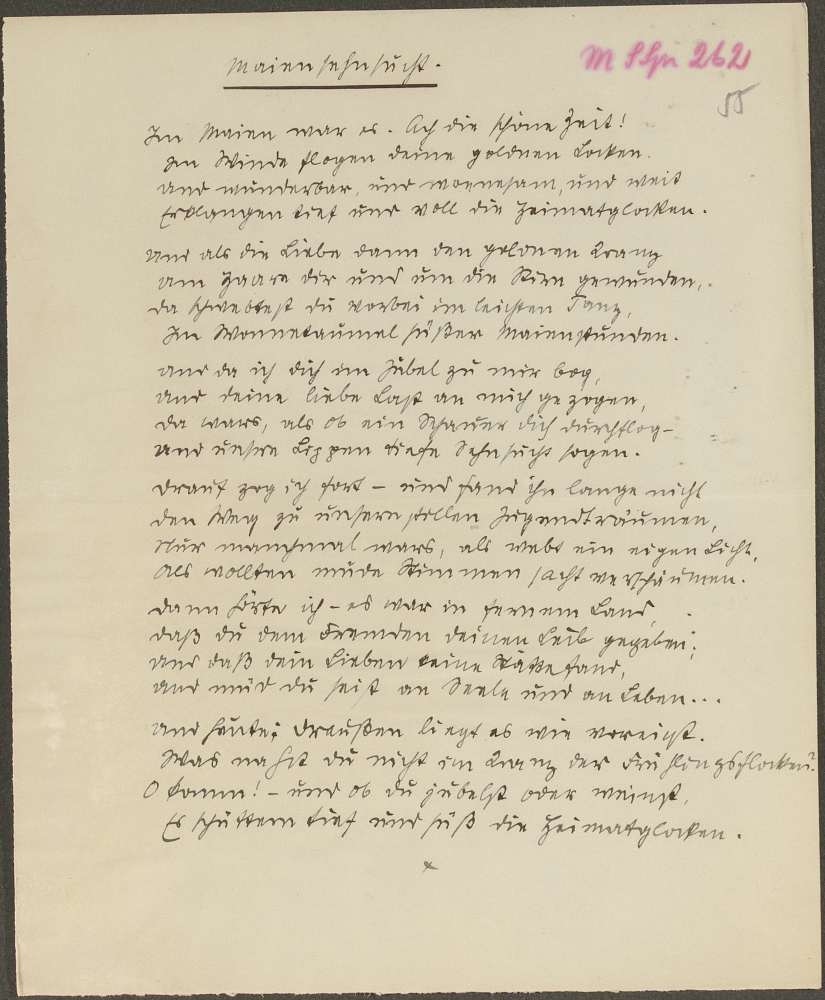 Maiensehnsucht.
M Slg 262
55
Im Maien war es. Ach die schöne Zeit!
Im Winde flogen deine goldnen Locken.
Und wunderbar, und wonnesam, und weit
Erklangen tief und voll die Heimatglocken.
Und als die Liebe dann den goldnen Kranz
Um Haare dir und um die Stirn gewunden,
Da schwebtest du vorbei im leichten Tanz,
Im Wonnetaumel süßer Maienstunden.
Und da ich dich im Jubel zu mir bog,
Und deine liebe Last an mich gezogen,
Da wars, als ob ein Schauer dich durchflog –
Und unsre Lippen tiefe Sehnsucht sogen.
Drauf zog ich fort – und fand ihn lange nicht
Den Weg zu unsern stillen Jugendträumen,
Nur manchmal wars, als webt ein eigen Licht,
Als wollten müde Stimmen sacht verschäumen.
Dann hörte ich – es war in fernem Land,
Daß du dem Fremden deinen Leib gegeben;
Und daß dein Lieben keine Stätte fand,
Und müd du seist an Seele und an Leben...
Und heute; draußen liegt es wie vereist.
Was nahst du nicht im Kranz der Frühlingsflocken?
O komm! – und ob du jubelst oder weinst,
Es schüttern tief und süß die Heimatglocken.